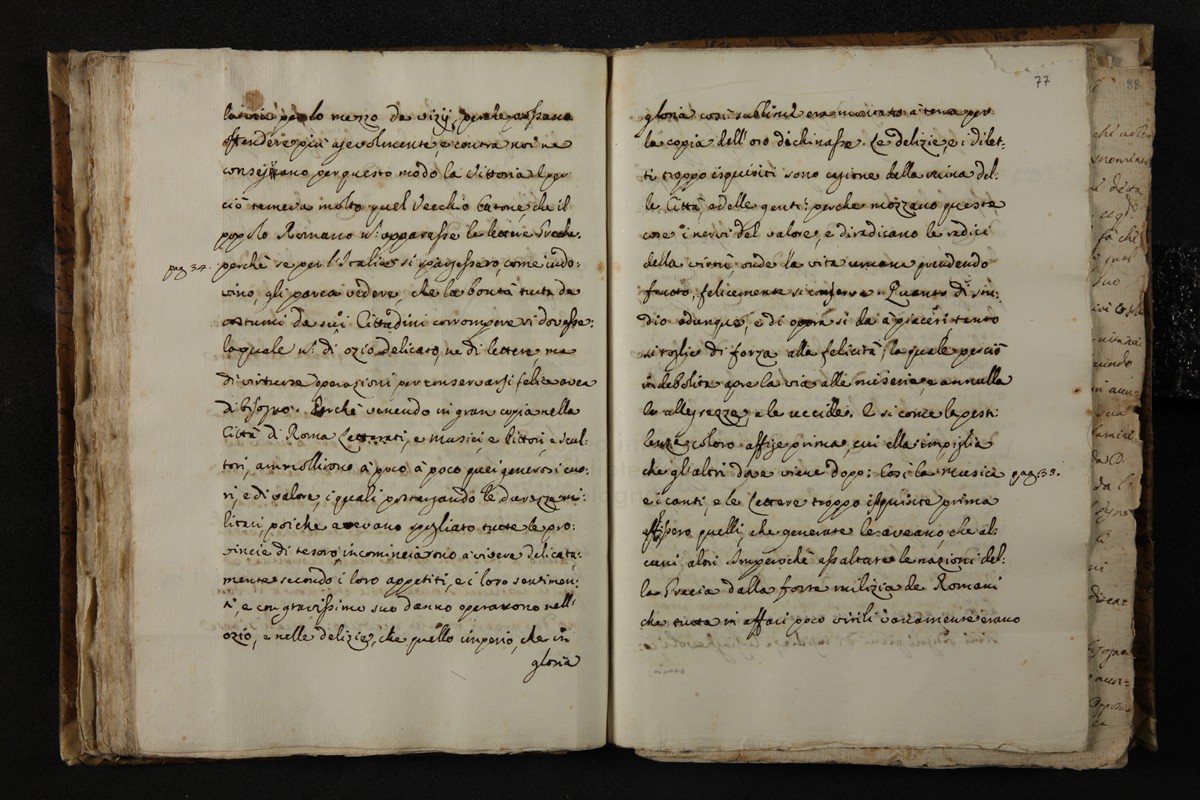 lascia per lo mezzo de vizij, perche possano
offendere più ajevolmente, e contra noi ne
conseguano per questo modo la Vittoria. E per
ciò temeva molto quel Vecchio Catone, che il
popolo Romano n: apparasse le lettere Greche,
pag. 34. perchè se per l'Italia si spargessero, come indo-
vino, gli parea vedere, che la bontà tutta de
costumi de suoi Cittadini corrompere si dovesse:
laquale n: di ozio delicato, ne di lettere, ma
di virtuose operazioni per conservarsi felice avea
di bisogno. Perchè venendo in gran copia nella
Città di Roma Letterati, e Musici, e Pittori, e Scul-
tori, ammollirono à poco à poco quei generosi cuo-
ri, e di valore, i quali posta giù le durezze mi-
litari, poiche avevano spogliato tutte le pro-
vincie di tesoro, incominciarono a vivere delicata-
mente secondo i loro appetiti, e i loro sentimen-
ti, e con gravissimo suo danno operarono nell'
ozio, e nelle delizie, che quello imperio, che in
gloria
77
gloria così sublime era montato a terra per
la copia dell'oro dechinasse. Le delizie, e i dilet-
ti troppo isquisiti sono cagione della ruina del-
le Città, e delle genti: perche mozzano queste
cose i nervi del valore, e diradicano le radici
della virtù, onde la vita umana prendendo
frutto, felicemente si conserva. Quanto di stu-
dio adunque, e di opera si da à piaceri tanto
si toglie di forza alla felicità, la quale perciò
indebolita apre la via alle miserie, e annulla
le allegrezze, e le uccide. E si come la pesti-
lenza coloro affige prima, cui ella impiglia
che gli altri dove viene dopo: Così la musica pag. 35.
e i canti, e le Lettere troppo isquisite prima
affissero quelli, che generate le aveano che al-
cuni altri. Imperochè essaltare le nazioni del-
la Grecia dalla forte milizia de Romani
che tutta in affari poco virili vanamente erano
88